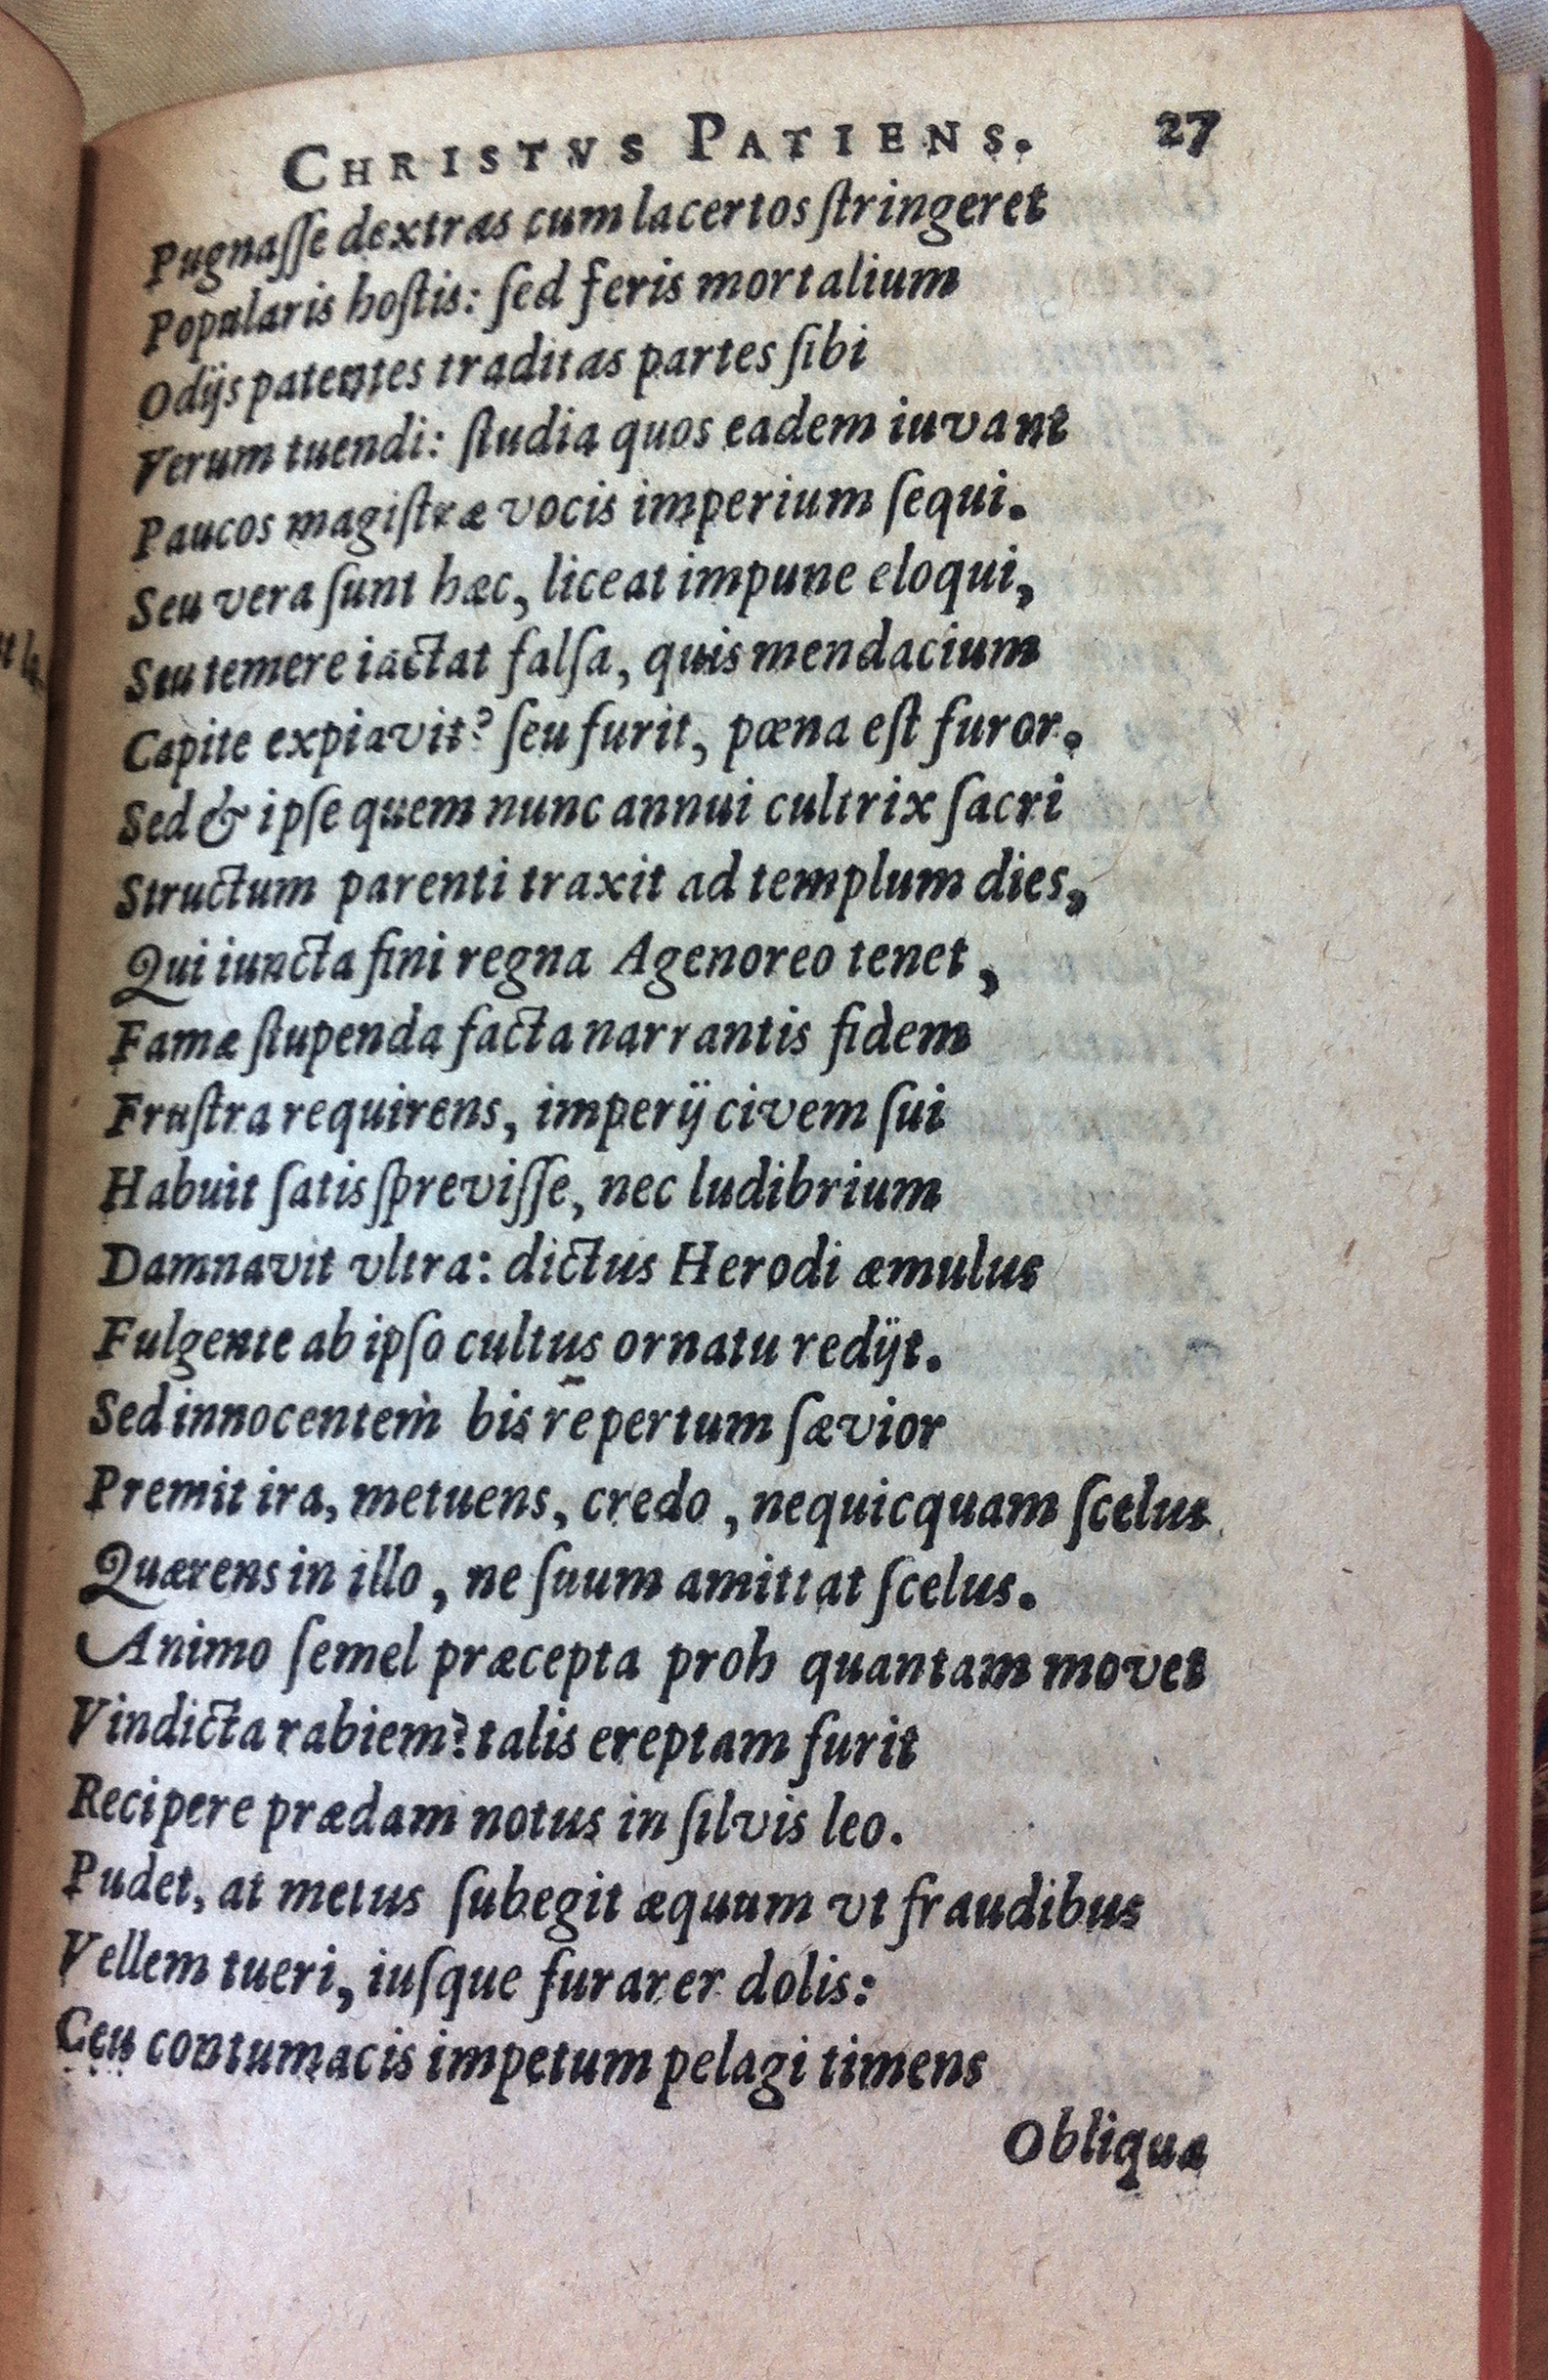 CHRISTVS PATIENS. 27
Pugnaſſe dextras cum lacertos ſtringeret
Popularis hoſtis: ſed feris mortalium
Odijs patentes traditas partes ſibi
Verum tuendi: ſtudia quos eadem iuvant
Paucos magiſtræ vocis imperium ſequi.
Seu vera ſunt hæc, liceat impune eloqui,
Seu temere iactat falſa, quis mendacium
Capite expiavit? ſeu furit, pœna eſt furor.
Sed & ipſe quem nunc annui cultrix ſacri
Structum parenti traxit ad templum dies,
Qui iuncta fini regna Agenoreo tenet,
Famæ ſtupenda facta narrantis fidem
Fruſtra requirens, imperij civem ſui
Habuit ſatis ſpreviſſe, nec ludibrium
Damnavit vltra: dictus Herodi æmulus
Fulgente ab ipſo cultus ornatu redijt.
Sed innocentem bis repertum ſævior
Premit ira, metuens, credo, nequicquam ſcelus
Quærens in illo, ne ſuum amittat ſcelus.
Animo ſemel præcepta proh quantam movet
Vindicta rabiem? talis ereptam furit
Recipere prædam notus in ſilvis leo.
Pudet, at metus ſubegit æquum vt fraudibus
Vellem tueri, iuſque furarer dolis:
Ceu contumacis impetum pelagi timens
Obliqua